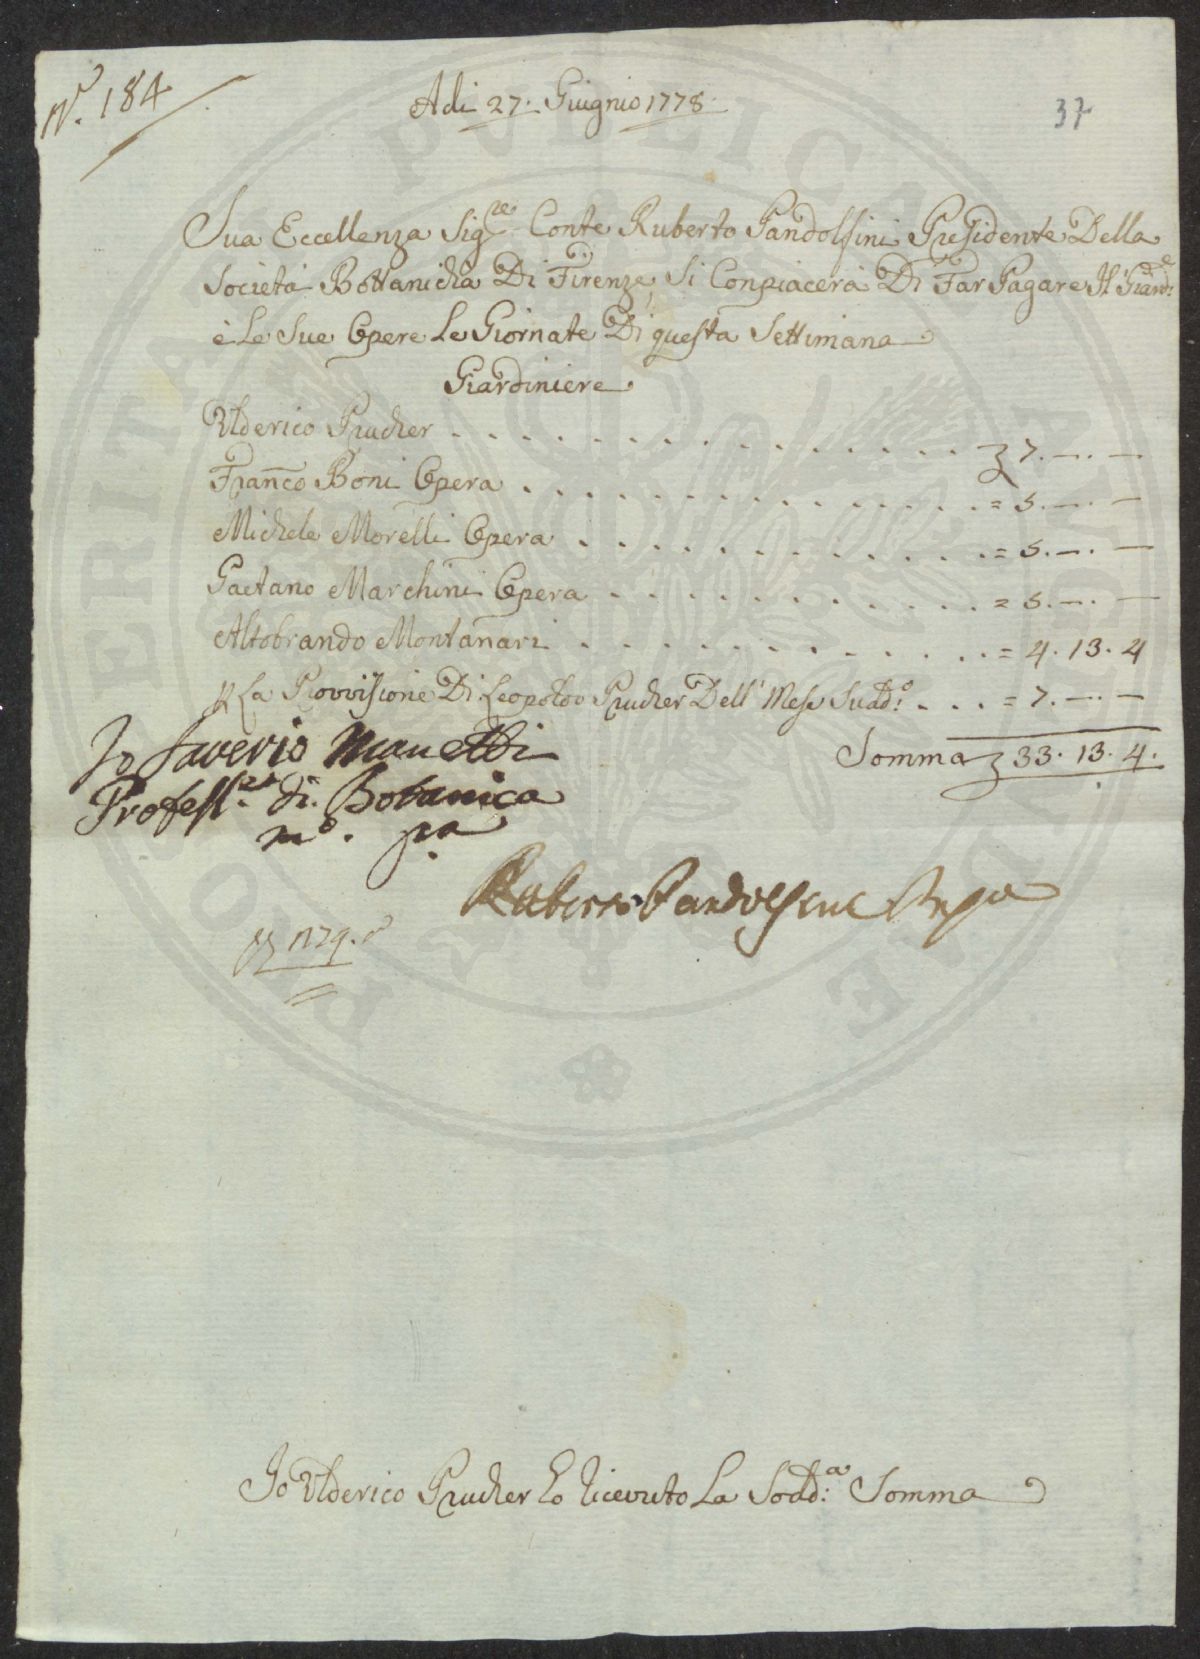 N.º 184
Adi 27. Giugnio 1778.
37
Sua Eccellenza Sig.re Conte Ruberto Pandolfini Presidente Della
Società Bottanicha Di Firenze Si Conpiacerà Di Far Pagare Il Giard.e
è Le Sue Opere Le Giornate Di questa Settimana
Giardiniere
Ulderico Prucher . . . . . . . . . . . . . . . . . . 7. —. —
Franco Boni Opera . . . . . . . . . . . . . . . . = 5. —. —
Michele Morelli Opera . . . . . . . . . . . . . . = 5. —. —
Gaetano Marchini Opera . . . . . . . . . . . . . = 5. —. —
Altobrando Montanari . . . . . . . . . . . . . . = 4. 13. 4
P La Provvisione Di Leopoldo Prucher Dell' Mese Sudd.o . . . . = 7. —. —
Somma 33. 13. 4.
Io Saverio Manetti
Profess.re di Botanica
m.o pa
Ruberto Pandolfini
Io Ulderico Prucher ho ricevuto La Sodd.a Somma
PROPERITATI PUBLICAE AUGENDAE